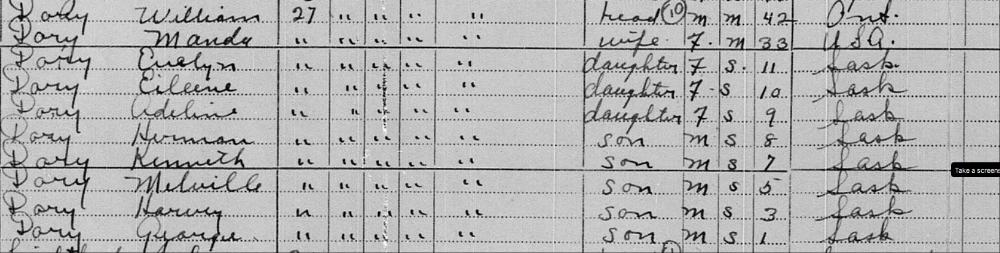 Dory William 27 " " " " head 10 m m 42 Ont.
Dory Manda " " " " " wife F. m 33 U.S.A.
Dory Evelyn " " " " " daughter F s. 11 Sask
Dory Eileene " " " " " daughter F. s 10 Sask
Dory Adeline " " " " " daughter F s 9 Sask
Dory Herman " " " " " son m s 8 Sask
Dory Kenneth " " " " " son m s 7 Sask
Dory Melville " " " " " son m s 5 Sask
Dory Harvey " " " " " son m s 3 Sask
Dory George " " " " " son m s 1 Sask
Take a screens